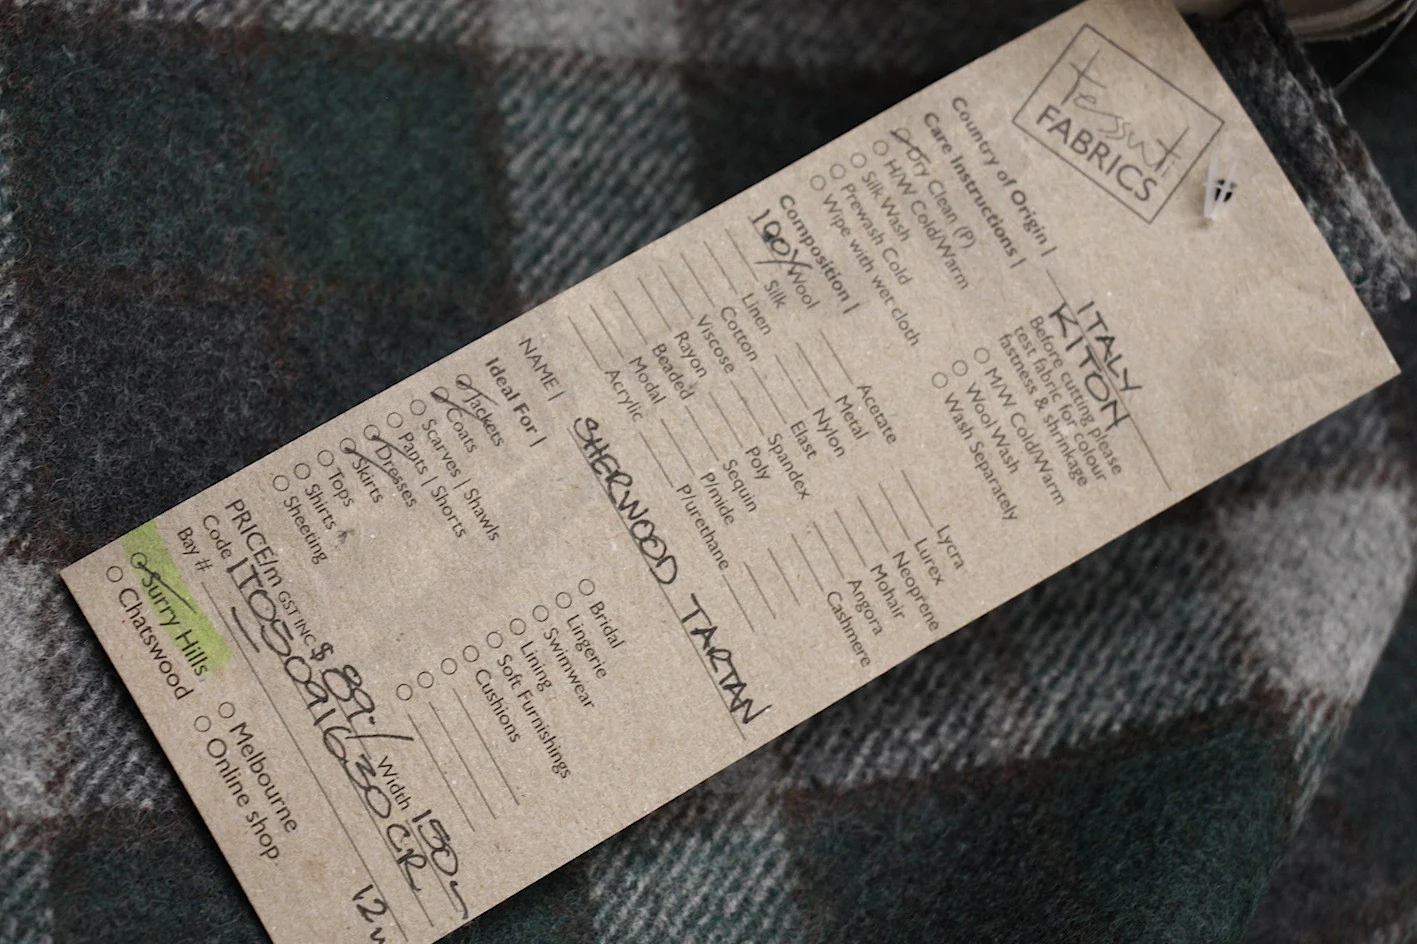 tessuti
FABRICS
Country of Origin | ITALY
KITON
Care Instructions |
Before cutting please
test fabric for colour
fastness & shrinkage
Dry Clean (P)
H/W Cold/Warm
M/W Cold/Warm
Silk Wash
Wool Wash
Prewash Cold
Wash Separately
Wipe with wet cloth
Composition |
100% Wool
Acetate
Lycra
Silk
Metal
Lurex
Linen
Nylon
Neoprene
Cotton
Elast
Mohair
Viscose
Spandex
Angora
Rayon
Poly
Cashmere
Beaded
Sequin
Modal
P/mide
Acrylic
P/urethane
NAME | SHERWOOD TARTAN
Ideal For |
Jackets
Bridal
Coats
Lingerie
Scarves | Shawls
Swimwear
Pants | Shorts
Lining
Dresses
Soft Furnishings
Skirts
Cushions
Tops
Shirts
Sheeting
PRICE/m GST INC $89.-/ Width 150
Code ITOS091630CR
Bay #
Surry Hills
Melbourne
Chatswood
Online shop